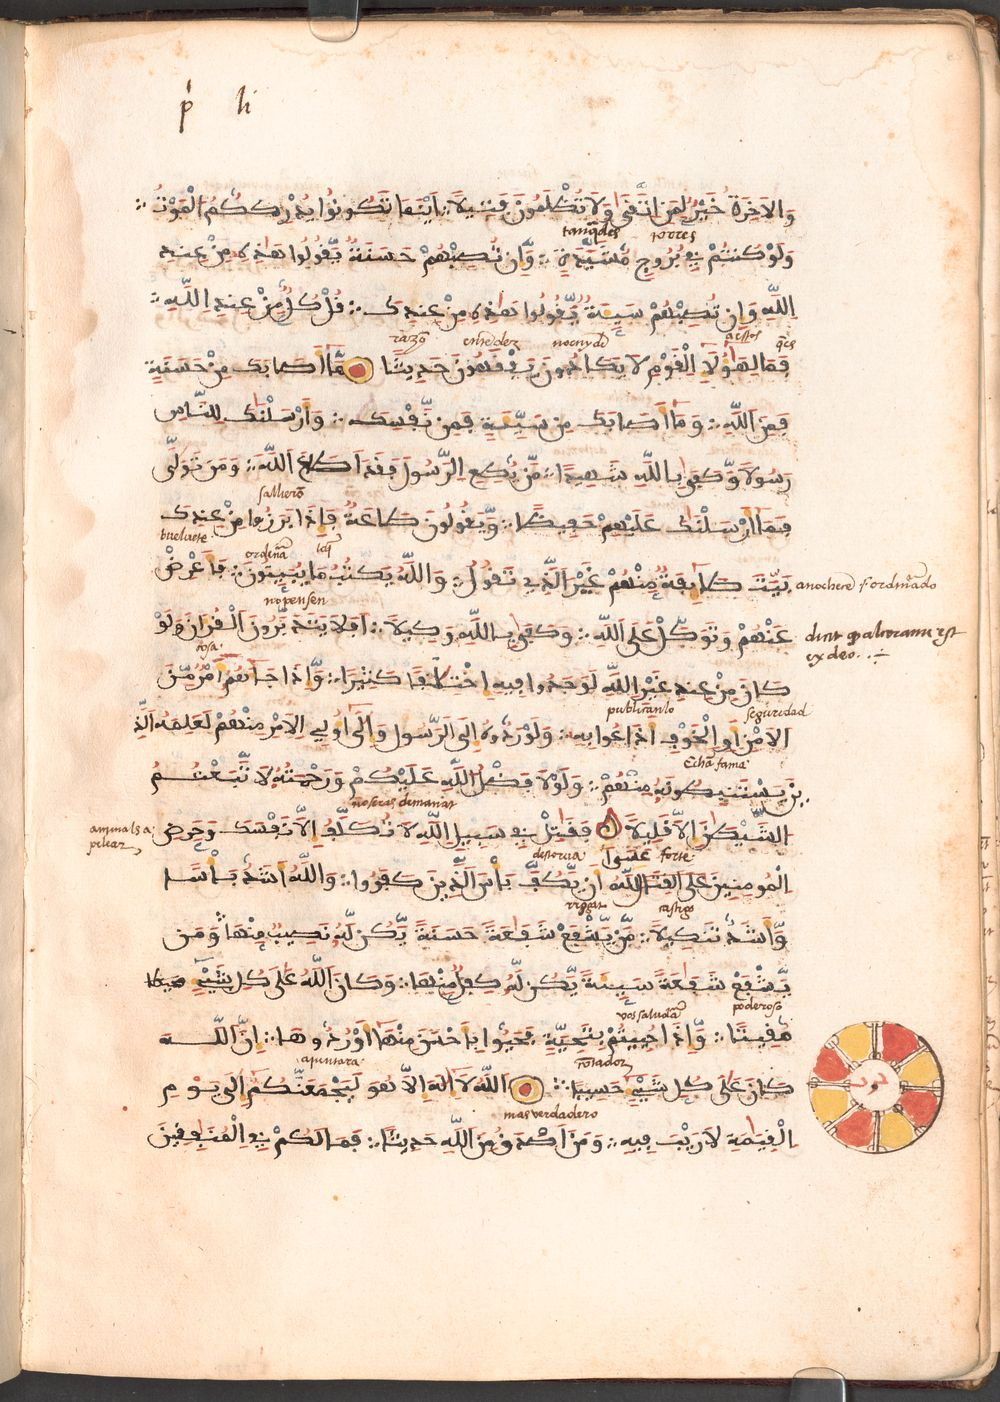 ṕ li
وَالَاخِرَةُ خَيْرٌ لِّمَنِ اتَّقَىٰ وَلَا تُظْلَمُونَ فَتِيلًا ∴ اَيْنَمَا تَكُونُوا يُدْرِككُّمُ الْمَوْتُ ∴
tanq̃des torres
وَلَوْ كُنتُمْ فِي بُرُوجٍ مُّشَيَّدَةٍ ∴ وَّإِن تُصِبْهُمْ حَسَنَةٌ يَّقُولُوا هَٰذِهِ مِنْ عِندِ
اِللَّهِ وَإِن تُصِبْهُمْ سَيِّئَةٌ يَّقُولُوا هَٰذِهِ مِنْ عِندِكَ ∴ قُلْ كُلٌّ مِّنْ عِندِ اِللَّهِ ∴
razõ nocnydẽ aestos q̃es
فَمَالِ هَٰؤُلَاءِ اِلْقَوْمِ لَا يَكَادُونَ يَفْقَهُونَ حَدِيثًا مَّا أَصَابَكَ مِنْ حَسَنَةٍ
فَمِنَ اَللَّهِ ∴ وَمَا أَصَابَكَ مِن سَيِّئَةٍ فَمِن نَّفْسِكَ ∴ وَأَرْسَلْنَٰكَ لِلنَّاسِ
رَسُولًا وَّكَفَىٰ بِاللَّهِ شَهِيدًا ∴ مَّن يُّطِعِ اِلرَّسُولَ فَقَدَ اَطَاعَ اَللَّهَ ∴ وَمَن تَوَلَّىٰ
salierõ
فَمَا أَرْسَلْنَٰكَ عَلَيْهِمْ حَفِيظًا ∴ وَّيَقُولُونَ طَاعَةٌ فَإِذَا بَرَزُوا مِنْ عِندِكَ
buelvete ordenã lq̃
بَيَّتَ طَائِفَةٌ مِّنْهُمْ غَيْرَ اَلَّذِي تَقُولُ ∴ وَاللَّهُ يَكْتُبُ مَا يُبَيِّتُونَ ∴ فَأَعْرِضْ
anocherẽ ordinãdo
no pensen
عَنْهُمْ وَتَوَكَّلْ عَلَى اَللَّهِ ∴ وَكَفَىٰ بِاللَّهِ وَكِيلًا ∴ اَفَلَا يَتَدَبَّرُونَ اَلْقُرْآنَ وَلَوْ
dicit q̃ alcoranu est
ex deo.
cosa
كَانَ مِنْ عِندِ غَيْرِ اِللَّهِ لَوَجَدُوا فِيهِ اِخْتِلَٰفًا كَثِيرًا ∴ وَّإِذَا جَاءَهُمُ أَمْرٌ مِّنَ
publicanlo seguridad
اَلَامْنِ أَوِ اِلْخَوْفِ أَذَاعُوا بِهِ ∴ وَلَوْ رَدُّوهُ إِلَى اَلرَّسُولِ وَإِلَىٰ أُولِي اِلَامْرِ مِنْهُمْ لَعَلِمَهُ اَلَّذِ
Echã fama
ينَ يَسْتَنبِطُونَهُ مِنْهُمْ ∴ وَلَوْلَا فَضْلُ اُللَّهِ عَلَيْكُمْ وَرَحْمَتُهُ لَاتَّبَعْتُمُ
no seras demanat
اُلشَّيْطَٰنَ إِلَّا قَلِيلًا فَقَٰتِلْ فِي سَبِيلِ اِللَّهِ لَا تُكَلَّفُ إِلَّا نَفْسَكَ وَحَرِّضِ
animals a
pelear
destorva عَسَى forte
اِلْمُومِنِينَ عَلَى اَلْقِتَالِ اللَّهُ أَن يَّكُفَّ بَأْسَ اَلَّذِينَ كَفَرُوا ∴ وَاللَّهُ أَشَدُّ بَأْسًا
castigo
وَّأَشَدُّ تَنكِيلًا ∴ مَّن يَّشْفَعْ شَفَٰعَةً حَسَنَةً يَّكُن لَّهُ نَصِيبٌ مِّنْهَا ∴ وَمَن
يَّشْفَعْ شَفَٰعَةً سَيِّئَةً يَّكُن لَّهُ كِفْلٌ مِّنْهَا ∴ وَكَانَ اَللَّهُ عَلَىٰ كُلِّ شَيْءٍ
vos saludã poderoso
مُّقِيتًا ∴ وَّإِذَا حُيِّيتُم بِتَحِيَّةٍ فَحَيُّوا بِأَحْسَنَ مِنْهَا أَوْ رُدُّوهَا ∴ إِنَّ اَللَّهَ
ajuntara cõtador
كَانَ عَلَىٰ كُلِّ شَيْءٍ حَسِيبًا ∴ اَللَّهُ لَا إِلَٰهَ إِلَّا هُوَ لَيَجْمَعَنَّكُمُ إِلَىٰ يَوْمِ
mas verdadero
اِلْقِيَٰمَةِ لَا رَيْبَ فِيهِ ∴ وَمَنَ اَصْدَقُ مِنَ اَللَّهِ حَدِيثًا ∴ فَمَا لَكُمْ فِي اِلْمُنَٰفِقِينَ